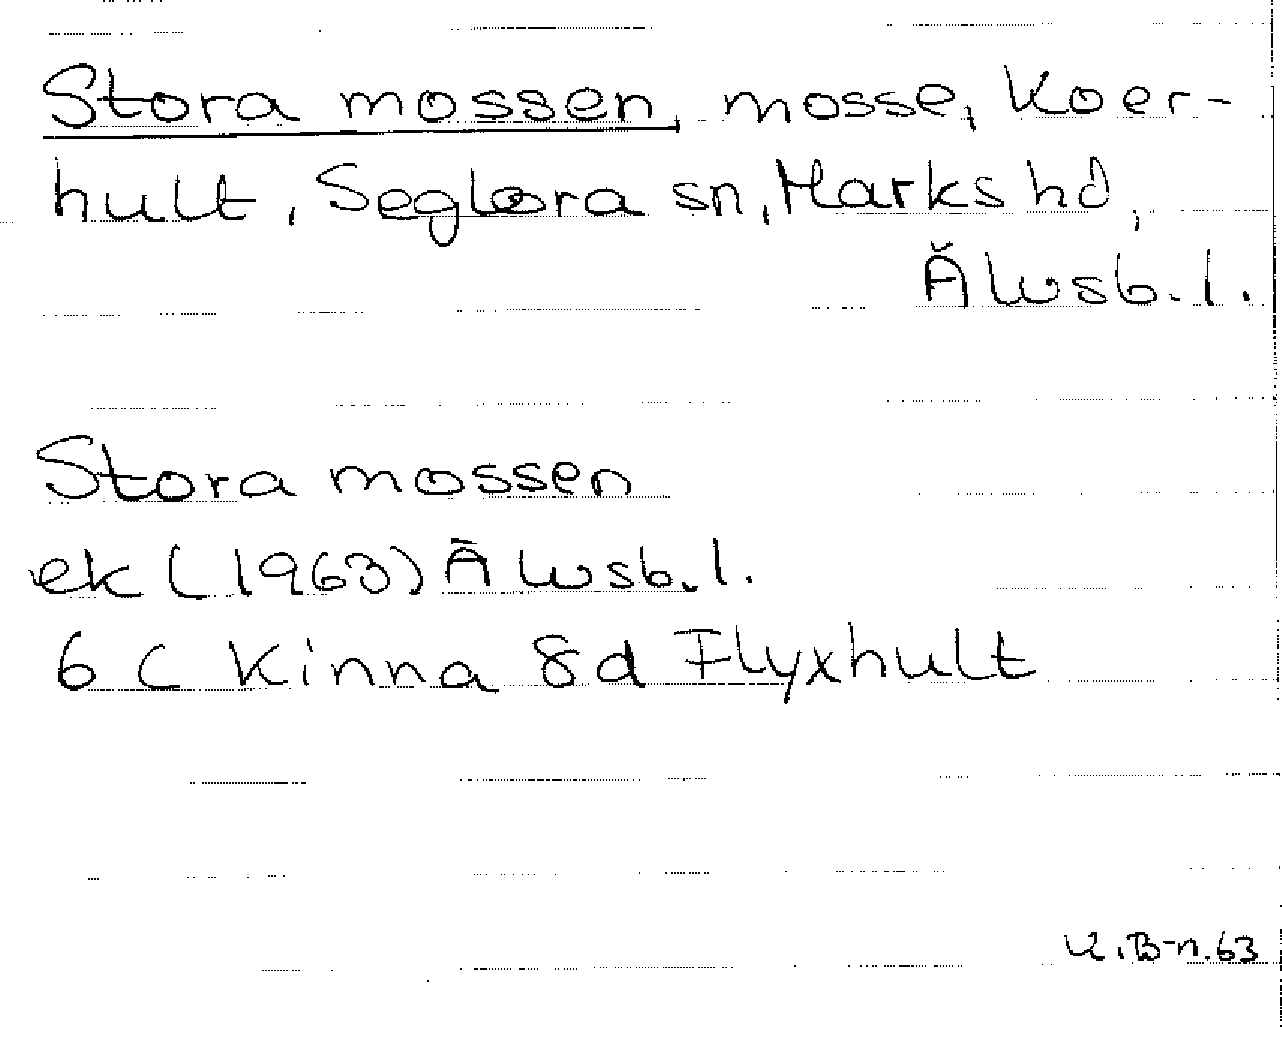 Stora mossen, mosse, Koer-
hult, Seglora sn, Marks hd,
Älvsb. l.
Stora mossen
ek (1963) Älvsb. l.
6 C Kinna 8d Flyxhult
K.B-n.63